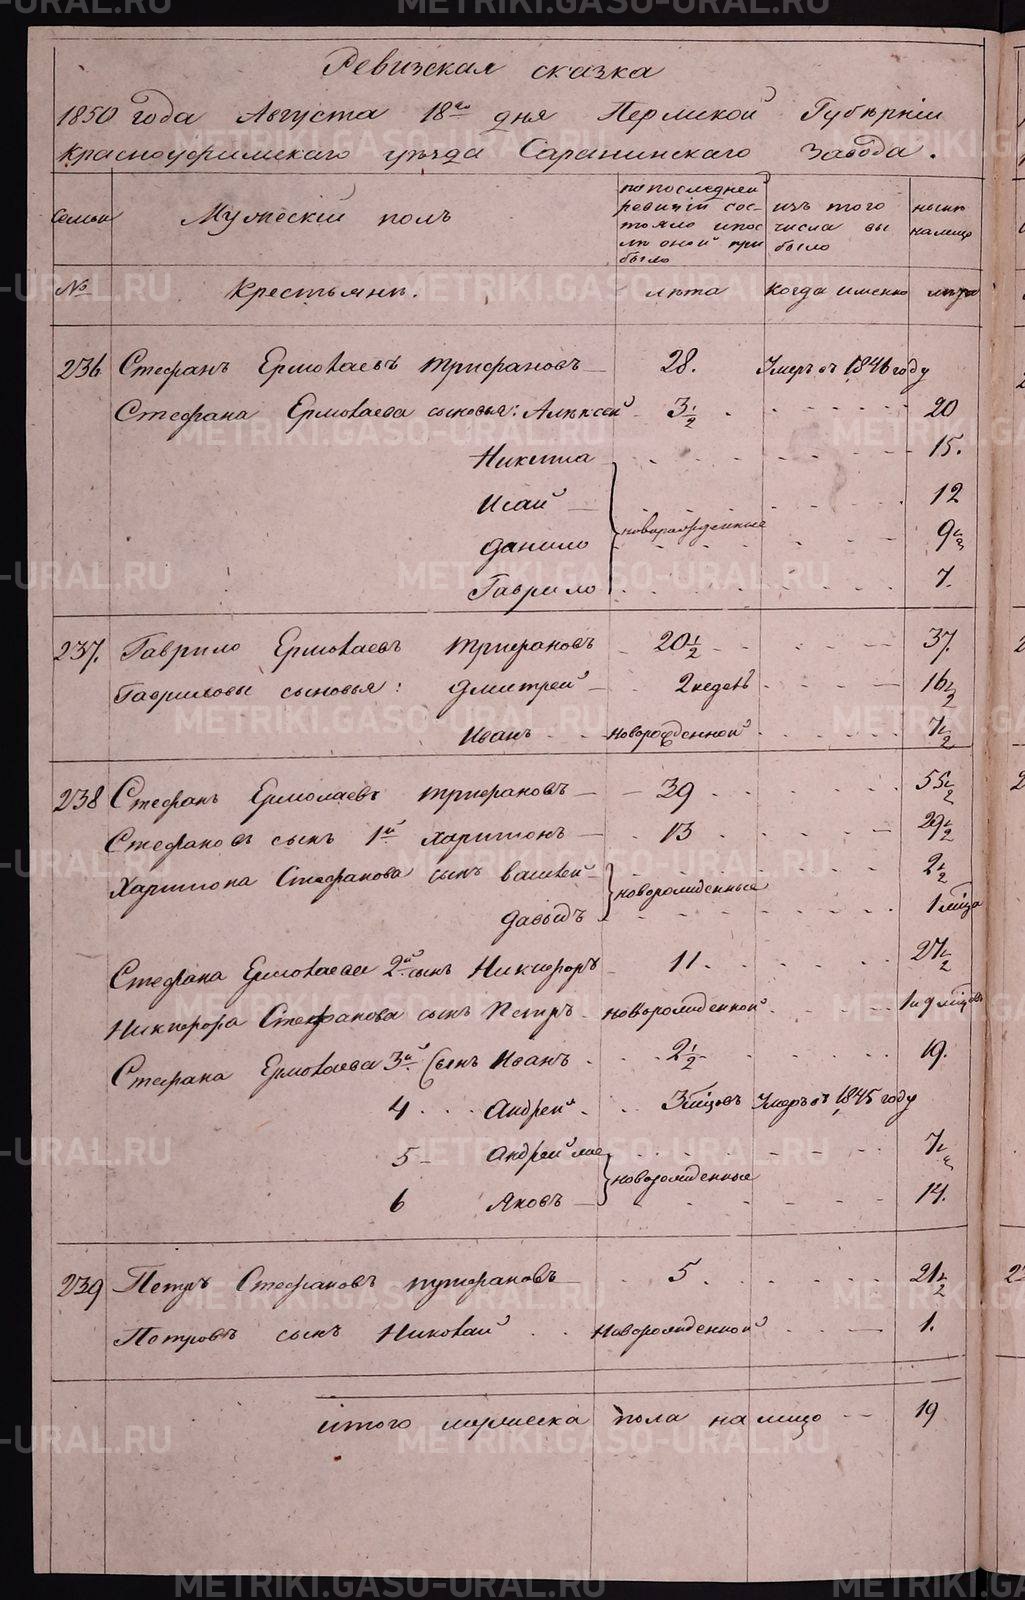 Ревизская сказка
1850 года Августа 18го дня Пермской Губѣрніи
Красноуфимскаго уѣзда Саранинскаго Завода.
Семьи Мужескій полъ по последней ревизіи состояло и после оной прибыло изъ того числа выбыло нынѣ налицо
№ Крестьянѣ. лѣта когда именно лѣта
236 Стефанъ Ермолаевъ Трифановъ 28. Умеръ въ 1846 году
Стефана Ермолаева сыновья: Алѣксей 3 1/2 20
Никита 15.
Исай 12
новорожденные
Данило 9 1/2
Гаврило 7.
237. Гаврило Ермолаевъ Трифановъ 20 1/2 37.
Гавриловы сыновья: Дмитрей 2 недель 16 1/2
Иванъ новорожденной 7 1/2
238 Стефанъ Ермолаевъ Трифановъ 39 55 1/2
Стефановъ сынъ 1й Харитонъ 13 29 1/2
Харитона Стефанова сынъ Василей 2 1/2
новорожденные
Давыдъ 1 мѣца
Стефана Ермолаева 2й сынъ Никифоръ 11. 27 1/2
Никифора Стефанова сынъ Петръ новорожденной 1 и 9 мѣцовъ
Стефана Ермолаева 3й сынъ Иванъ 2 1/2 19.
4 Андрей 3 мѣцовъ Умеръ въ 1845 году
5 Андрей 7 1/2
новорожденные
6 Яковъ 14.
239 Петръ Стефановъ 5. 21 1/2
Петровъ сынъ Николай Новорожденной 1.
итого мужеска пола налицо 19
METRIKI.GASO-URAL.RU